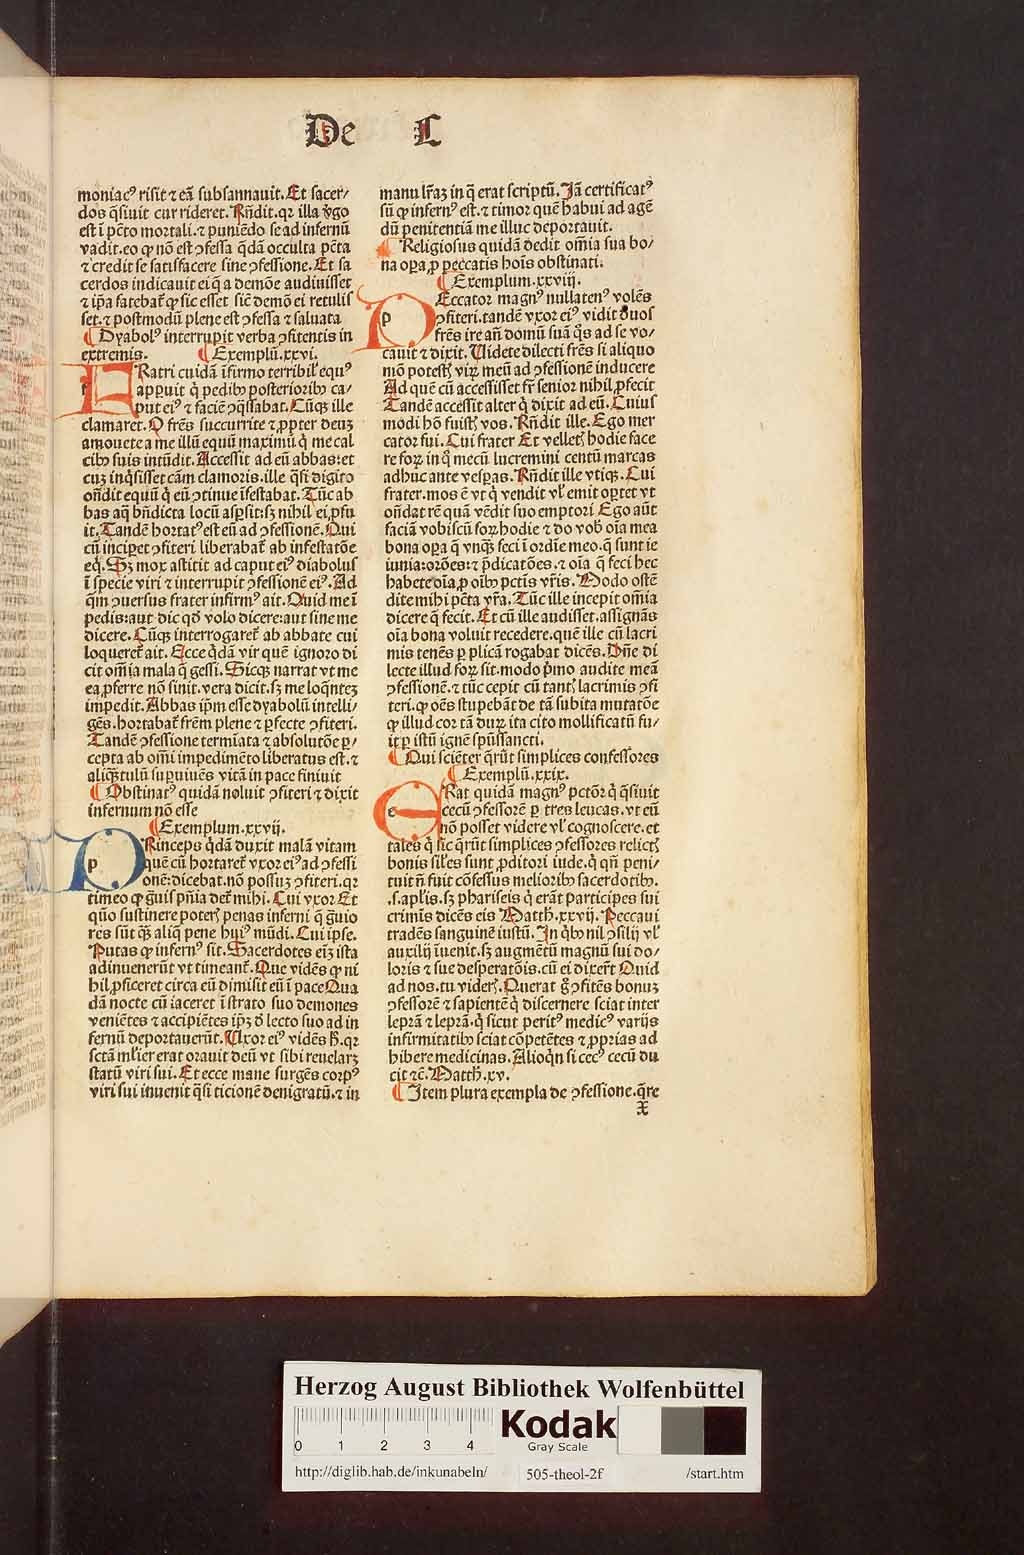 De L
moniacꝰ risit ⁊ eā subsannauit. Et sacer/
dos q̄siuit cur rideret. Rñdit. qꝛ illa v̾go
est ī pctō mortali. ⁊ puniēdo se ad infernū
vadit. eo ꝙ nō est ꝯfessa q̄dā occulta pctā
⁊ credit se satisfacere sine ꝯfessione. Et sa
cerdos indicauit ei q̄ a demōe audiuisset
⁊ ip̄a fatebat̄ ꝙ sic esset sic̄ demō ei retulis
set. ⁊ postmodū plene est ꝯfessa ⁊ saluata
¶ Dyabolꝰ interrupit verba ꝯfitentis in
extremis. ¶ Exemplū.xxvi.
FRatri cuidā īfirmo terribil̓ equꝰ
apꝑuit q̄ pedibꝰ posterioribꝰ ca/
put eiꝰ ⁊ faciē ꝯq̄ssabat. Cūqꝫ ille
clamaret. O frēs succurrite ⁊ ꝓpter deuꝫ
amouete a me illū equū maximū q̇ me cal
cibꝰ suis intūdit. Accessit ad eū abbas: et
cuꝫ inq̇sisset cām clamoris. ille q̄si digito
oñdit equū q̇ eū ꝯtinue īfestabat. Tūc ab
bas aq̄ bñdicta locū aspsit: sꝫ nihil ei ꝓfu
it. Tandē hortatꝰ est eū ad ꝯfessionē. Qui
cū incipet ꝯfiteri liberabat̄ ab infestatōe
eq̇. Sꝫ mox astitit ad caput eiꝰ diabolus
ī specie viri ⁊ interrupit ꝯfessionē eiꝰ. Ad
q̄m ꝯuersus frater infirmꝰ ait. Quid me ī
pedis: aut dic qd̄ volo dicere: aut sine me
dicere. Cūqꝫ interrogaret̄ ab abbate cui
loqueret̄ ait. Ecce q̇dā vir quē ignoro di
cit om̄ia mala q̄ gessi. Sicqꝫ narrat vt me
ea ꝓferre nō sinit. vera dicit. sꝫ me loq̄nteꝫ
impedit. Abbas ip̄m esse dyabolū intelli/
gēs. hortabat̄ frēm plene ⁊ ꝑfecte ꝯfiteri.
Tandē ꝯfessione termīata ⁊ absolutōe ꝑ/
cepta ab om̄i impedimēto liberatus est. ⁊
aliq̄ntulū suꝑuiuēs vitā in pace finiuit
¶ Obstinatꝰ quidā noluit ꝯfiteri ⁊ dixit
infernum nō esse
¶ Exemplum.xxvij.
pRinceps q̇dā duxit malā vitam
quē cū hortaret̄ vxor eiꝰ ad ꝯfessi
onē: dicebat. nō possuꝫ ꝯfiteri. qꝛ
timeo ꝙ g̾uis pn̄ia det̄ mihi. Cui vxor Et
quō sustinere poteris penas inferni q̄ g̾uio
res sūt q̄ꝫ aliq̄ pene huiꝰ mūdi. Cui ipse.
Putas ꝙ infernꝰ sit. Sacerdotes eī ista
adinuenerūt vt timeant̄. Que vidēs ꝙ ni
hil ꝓficeret circa eū dimisit eū ī pace Qua
dā nocte cū iaceret ī strato suo demones
veniētes ⁊ accipiētes ip̄ꝫ d̾ lecto suo ad in
fernū deportauerūt. Uxor eiꝰ vidēs h̄. qꝛ
sctā ml̓ier erat orauit deū vt sibi reuelarꝫ
statū viri sui. Et ecce mane surgēs corpꝰ
viri sui inuenit q̄si ticionē denigratū. ⁊ in
manu lr̄aꝫ in q̄ erat scriptū. Jā certificatꝰ
sū ꝙ infernꝰ est. ⁊ timor quē habui ad agē
dū penitentiā me illuc deportauit.
¶ Religiosus quidā dedit om̄ia sua bo/
na oꝑa ꝓ peccatis hoīs obstinati.
¶ Exemplum.xxviij.
pEccator magnꝰ nullatenꝰ volēs
ꝯfiteri. tandē vxor eiꝰ vidit duos
frēs ire añ domū suā q̇s ad se vo/
cauit ⁊ dixit. Uidete dilecti frēs si aliquo
mō potestis viꝝ meū ad ꝯfessionē inducere
Ad quē cū accessisset fr̄ senior nihil ꝓfecit
Tandē accessit alter q̇ dixit ad eū. Cuius
modi hō fuistis vos. Rñdit ille. Ego mer
cator fui. Cui frater Et velletis hodie face
re foꝝ in q̊ mecū lucremini centū marcas
adhuc ante vesꝑas. Rñdit ille vtiqꝫ. Cui
frater. mos ē vt q̇ vendit vl̓ emit oꝑtet vt
oñdat rē quā vēdit suo emptori Ego aūt
faciā vobiscū foꝝ hodie ⁊ do vob̓ oīa mea
bona oꝑa q̄ vnqꝫ feci ī ordīe meo. q̄ sunt ie
iunia: orōes: ⁊ p̄dicatōes. ⁊ oīa q̄ feci hec
habete oīa, ꝓ oībꝰ pctīs vr̄is. Modo ostē
dite mihi pctā vr̄a. Tūc ille incepit om̄ia
dicere q̄ fecit. Et cū ille audisset. assignās
oīa bona voluit recedere. quē ille cū lacri
mis tenēs ꝑ plicā rogabat dicēs. Dn̄e di
lecte illud foꝝ sit. modo p̊mo audite meā
ꝯfessionē. ⁊ tūc cepit cū tantis lacrimis ꝯfi
teri. ꝙ oēs stupebāt de tā subita mutatōe
ꝙ illud cor tā duꝝ ita cito mollificatū fu/
it ꝑ istū ignē spūssancti.
¶ Qui sciēter q̄rūt simplices confessores
¶ Exemplū.xxix.
eRat quidā magnꝰ pctōr q̇ q̄siuit
cecū ꝯfessorē ꝑ tres leucas. vt eū
nō posset videre vl̓ cognoscere. et
tales q̇ sic q̄rūt simplices ꝯfessores relictis
bonis sil̓es sunt ꝓditori iude. q̇ qñ peni/
tuit ñ fuit cōfessus melioribꝰ sacerdotibꝰ.
.s. apl̓is. sꝫ phariseis q̇ erāt participes sui
crimīs dicēs eis Matth. xxvij. Peccaui
tradēs sanguinē iustū. Jn q̇bꝰ nil ꝯsilij vl̓
auxilij īuenit. sꝫ augmētū magnū sui do/
loris ⁊ sue desperatōis. cū ei dixert̄ Quid
ad nos. tu videris. Querat g̊ ꝯfitēs bonuꝫ
ꝯfessorē ⁊ sapientē q̇ discernere sciat inter
leprā ⁊ leprā. q̇ sicut peritꝰ medicꝰ varijs
infirmitatibꝰ sciat cōpetētes ⁊ ꝓprias ad
hibere medicinas. Alioq̇n si cecꝰ cecū du
cit ⁊c̄. Matth. xv.
¶ Jtem plura exempla de ꝯfessione. q̄re
X
Herzog August Bibliothek Wolfenbüttel
0 1 2 3 4
Kodak
Gray Scale
http://diglib.hab.de/inkunabeln/ 505-theol-2f /start.htm